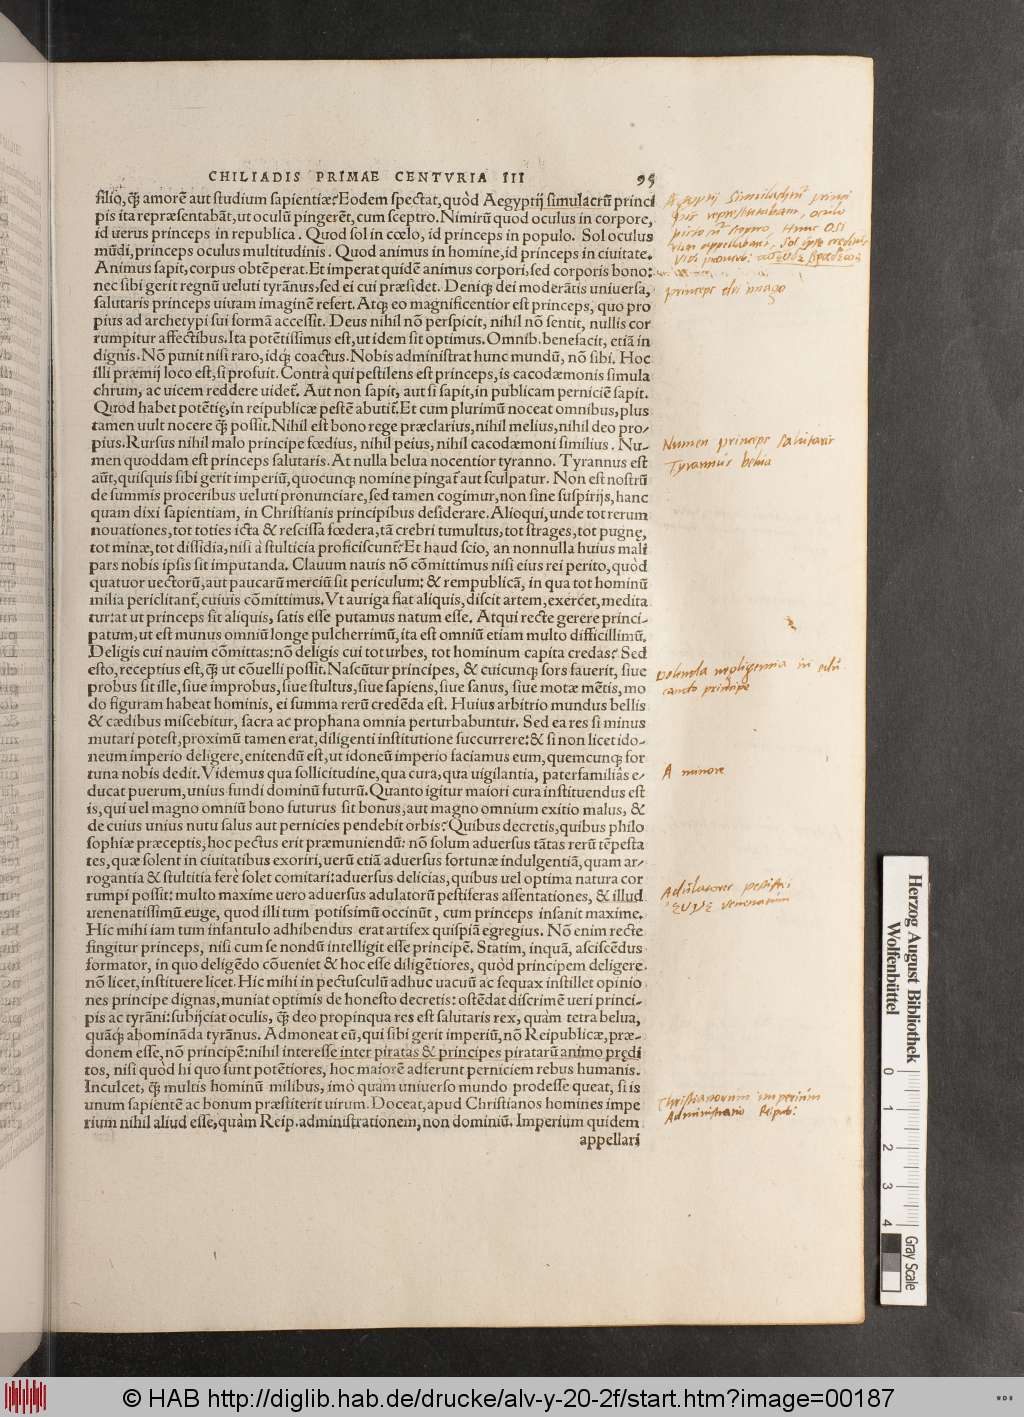 CHILIADIS PRIMAE CENTVRIA III 95
filio, q̃ȝ amorẽ aut studium sapientiæ? Eodem spectat, quòd Aegyptij simulacrũ princi
pis ita repræsentabãt, ut oculũ pingerẽt, cum sceptro. Nimirũ quod oculus in corpore,
id uerus princeps in republica. Quod sol in cœlo, id princeps in populo. Sol oculus
mũdi, princeps oculus multitudinis. Quod animus in homine, id princeps in ciuitate.
Animus sapit, corpus obtẽperat. Et imperat quidẽ animus corpori, sed corporis bono:
nec sibi gerit regnũ ueluti tyrãnus, sed ei cui præsidet. Deniqȝ dei moderãtis uniuersa,
salutaris princeps uiuam imaginẽ refert. Atqȝ eo magnificentior est princeps, quo pro
pius ad archetypi sui formã accessit. Deus nihil nõ perspicit, nihil nõ sentit, nullis cor
rumpitur affectibus. Ita potẽtissimus est, ut idem sit optimus. Omnib. benefacit, etiã in
dignis. Nõ punit nisi raro, idqȝ coactus. Nobis administrat hunc mundũ, nõ sibi. Hoc
illi præmij loco est, si profuit. Contrà qui pestilens est princeps, is cacodæmonis simula
chrum, ac uicem reddere uidet̃. Aut non sapit, aut si sapit, in publicam perniciẽ sapit.
Quod habet potẽtię, in reipublicæ pestẽ abutit̃. Et cum plurimũ noceat omnibus, plus
tamen uult nocere q̃ȝ possit. Nihil est bono rege præclarius, nihil melius, nihil deo pro-
pius. Rursus nihil malo principe fœdius, nihil peius, nihil cacodæmoni similius. Nu-
men quoddam est princeps salutaris. At nulla belua nocentior tyranno. Tyrannus est
aũt, quisquis sibi gerit imperiũ, quocunqȝ nomine pingat̃ aut sculpatur. Non est nostrũ
de summis proceribus ueluti pronunciare, sed tamen cogimur, non sine suspirijs, hanc
quam dixi sapientiam, in Christianis principibus desiderare. Alioqui, unde tot rerum
nouationes, tot toties icta & rescissa fœdera, tã crebri tumultus, tot strages, tot pugnę,
tot minæ, tot dissidia, nisi à stulticia proficiscunt̃? Et haud scio, an nonnulla huius mali
pars nobis ipsis sit imputanda. Clauum nauis nõ cõmittimus nisi eius rei perito, quòd
quatuor uectorũ, aut paucarũ merciũ sit periculum: & rempublicã, in qua tot hominũ
milia periclitant̃, cuiuis cõmittimus. Vt auriga fiat aliquis, discit artem, exercet, medita
tur: at ut princeps sit aliquis, satis esse putamus natum esse. Atqui recte gerere princi-
patum, ut est munus omniũ longe pulcherrimũ, ita est omniũ etiam multo difficillimũ.
Deligis cui nauim cõmittas: nõ deligis cui tot urbes, tot hominum capita credas? Sed
esto, receptius est, q̃ȝ ut cõuelli possit. Nascũtur principes, & cuicunqȝ sors fauerit, siue
probus sit ille, siue improbus, siue stultus, siue sapiens, siue sanus, siue motæ mẽtis, mo
do figuram habeat hominis, ei summa rerũ credẽda est. Huius arbitrio mundus bellis
& cædibus miscebitur, sacra ac prophana omnia perturbabuntur. Sed ea res si minus
mutari potest, proximũ tamen erat, diligenti institutione succurrere: & si non licet ido-
neum imperio deligere, enitendũ est, ut idoneũ imperio faciamus eum, quemcunqȝ for
tuna nobis dedit. Videmus qua sollicitudine, qua cura, qua uigilantia, paterfamiliâs e-
ducat puerum, unius fundi dominũ futurũ. Quanto igitur maiori cura instituendus est
is, qui uel magno omniũ bono futurus sit bonus, aut magno omnium exitio malus, &
de cuius unius nutu salus aut pernicies pendebit orbis? Quibus decretis, quibus philo
sophiæ præceptis, hoc pectus erit præmuniendũ: nõ solum aduersus tãtas rerũ tẽpesta
tes, quæ solent in ciuitatibus exoriri, uerũ etiã aduersus fortunæ indulgentiã, quam ar-
rogantia & stultitia ferè solet comitari: aduersus delicias, quibus uel optima natura cor
rumpi possit: multo maxime uero aduersus adulatorũ pestiferas assentationes, & illud
uenenatissimũ euge, quod illi tum potissimũ occinũt, cum princeps insanit maxime.
Hic mihi iam tum infantulo adhibendus erat artifex quispiã egregius. Nõ enim recte
fingitur princeps, nisi cum se nondũ intelligit esse principẽ. Statim, inquã, asciscẽdus
formator, in quo deligẽdo cõueniet & hoc esse diligẽtiores, quòd principem deligere
nõ licet, instituere licet. Hic mihi in pectusculũ adhuc uacuũ ac sequax instillet opinio
nes principe dignas, muniat optimis de honesto decretis: ostẽdat discrimẽ ueri princi-
pis ac tyrãni: subijciat oculis, q̃ȝ deo propinqua res est salutaris rex, quàm tetra belua,
quãqȝ abominãda tyrãnus. Admoneat eũ, qui sibi gerit imperiũ, nõ Reipublicæ, præ-
donem esse, nõ principẽ: nihil interesse inter piratas & principes piratarũ animo prędi
tos, nisi quòd hi quo sunt potẽtiores, hoc maiorẽ adferunt perniciem rebus humanis.
Inculcet, q̃ȝ multis hominũ milibus, imò quàm uniuerso mundo prodesse queat, si is
unum sapientẽ ac bonum præstiterit uirum. Doceat, apud Christianos homines impe
rium nihil aliud esse, quàm Reip. administrationem, non dominiũ. Imperium quidem
appellari
Ægyptij Simulachrũ princi
pis repręsentabant, oculo
picto cũ sceptro, Hunc OSI
princeps dei imago
Numen princeps salutaris
Tyrannus belua
Deflenda negligentia in edu
cando principe
A minore
Adulatores pestiferi
Christianorum imperiũm
Administratio Reipub:
Herzog August Bibliothek
Wolfenbüttel
0 1 2 3 4
Gray Scale
© HAB http://diglib.hab.de/drucke/alv-y-20-2f/start.htm?image=00187